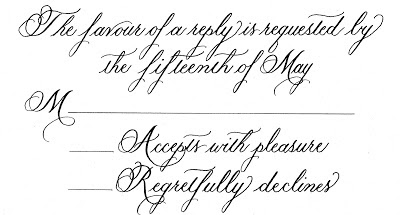 The favour of a reply is requested by
the fifteenth of May
M
Accepts with pleasure
Regretfully declines